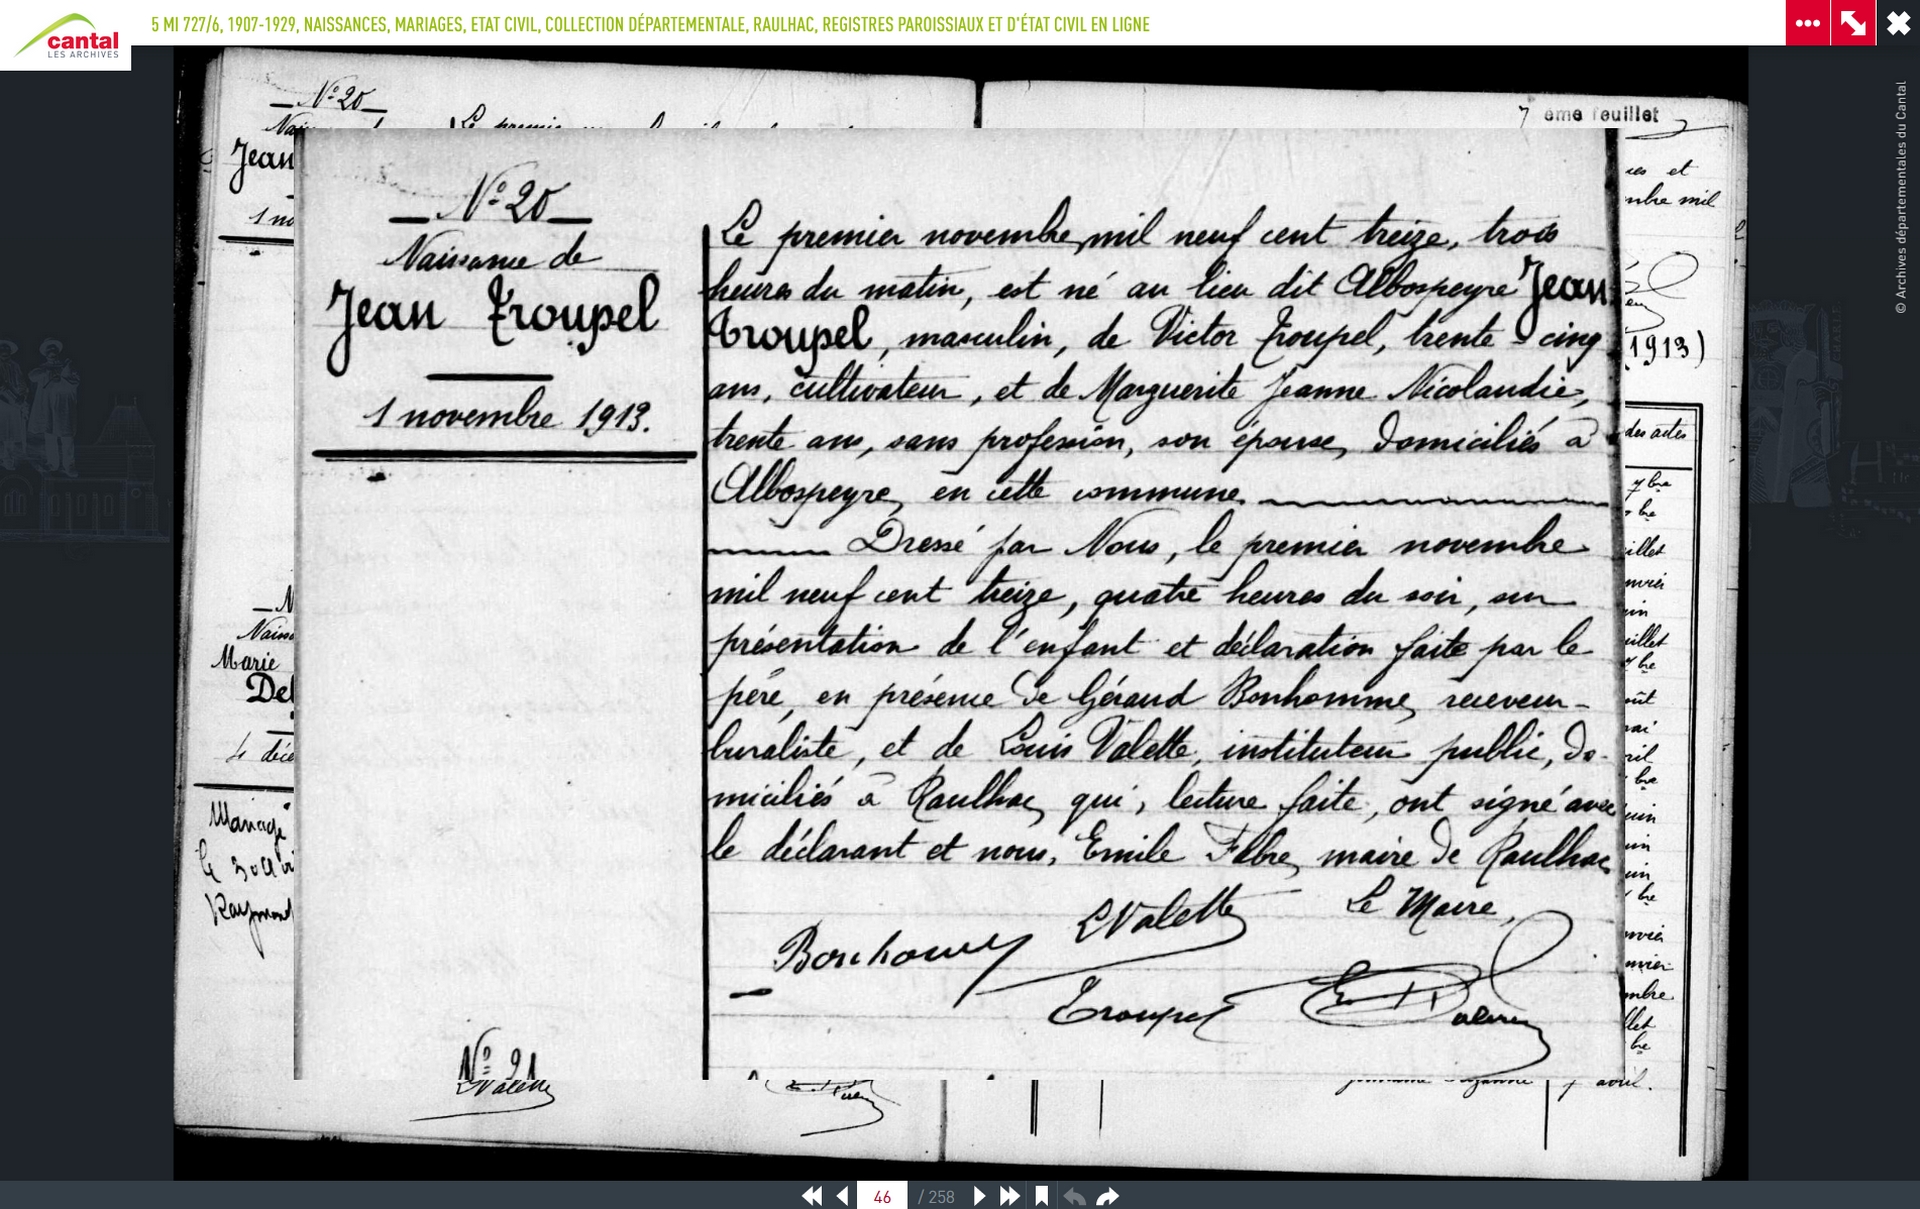 cantal
LES ARCHIVES
5 MI 727/6, 1907-1929, NAISSANCES, MARIAGES, ETAT CIVIL, COLLECTION DÉPARTEMENTALE, RAULHAC, REGISTRES PAROISSIAUX ET D'ÉTAT CIVIL EN LIGNE
© Archives départementales du Cantal
N° 20
7 ème feuillet
Jean
1 no
N° 20
Naissance de
Jean Troupel
1 novembre 1913.
Le premier novembre mil neuf cent treize, trois
heures du matin, est né au lieu dit Albospeyre Jean
Troupel, masculin, de Victor Troupel, trente-cinq
ans, cultivateur, et de Marguerite Jeanne Nicolaudie,
trente ans, sans profession, son épouse, domiciliés à
Albospeyre, en cette commune.
Dressé par Nous, le premier novembre
mil neuf cent treize, quatre heures du soir, sur
présentation de l'enfant et déclaration faite par le
père, en présence de Géraud Bonhomme, receveur-
buraliste, et de Louis Valette, instituteur public, do-
miciliés à Raulhac, qui, lecture faite, ont signé avec
le déclarant et nous, Emile Fabre, maire de Raulhac
LValette Le Maire,
Bonhomme
Troupel
N° 21
LValette
et
mbre mil
1913)
des actes
7 bre
illet
uillet
avril.
Marie
Del
4 déce
Mariage
Raymond
46 / 258